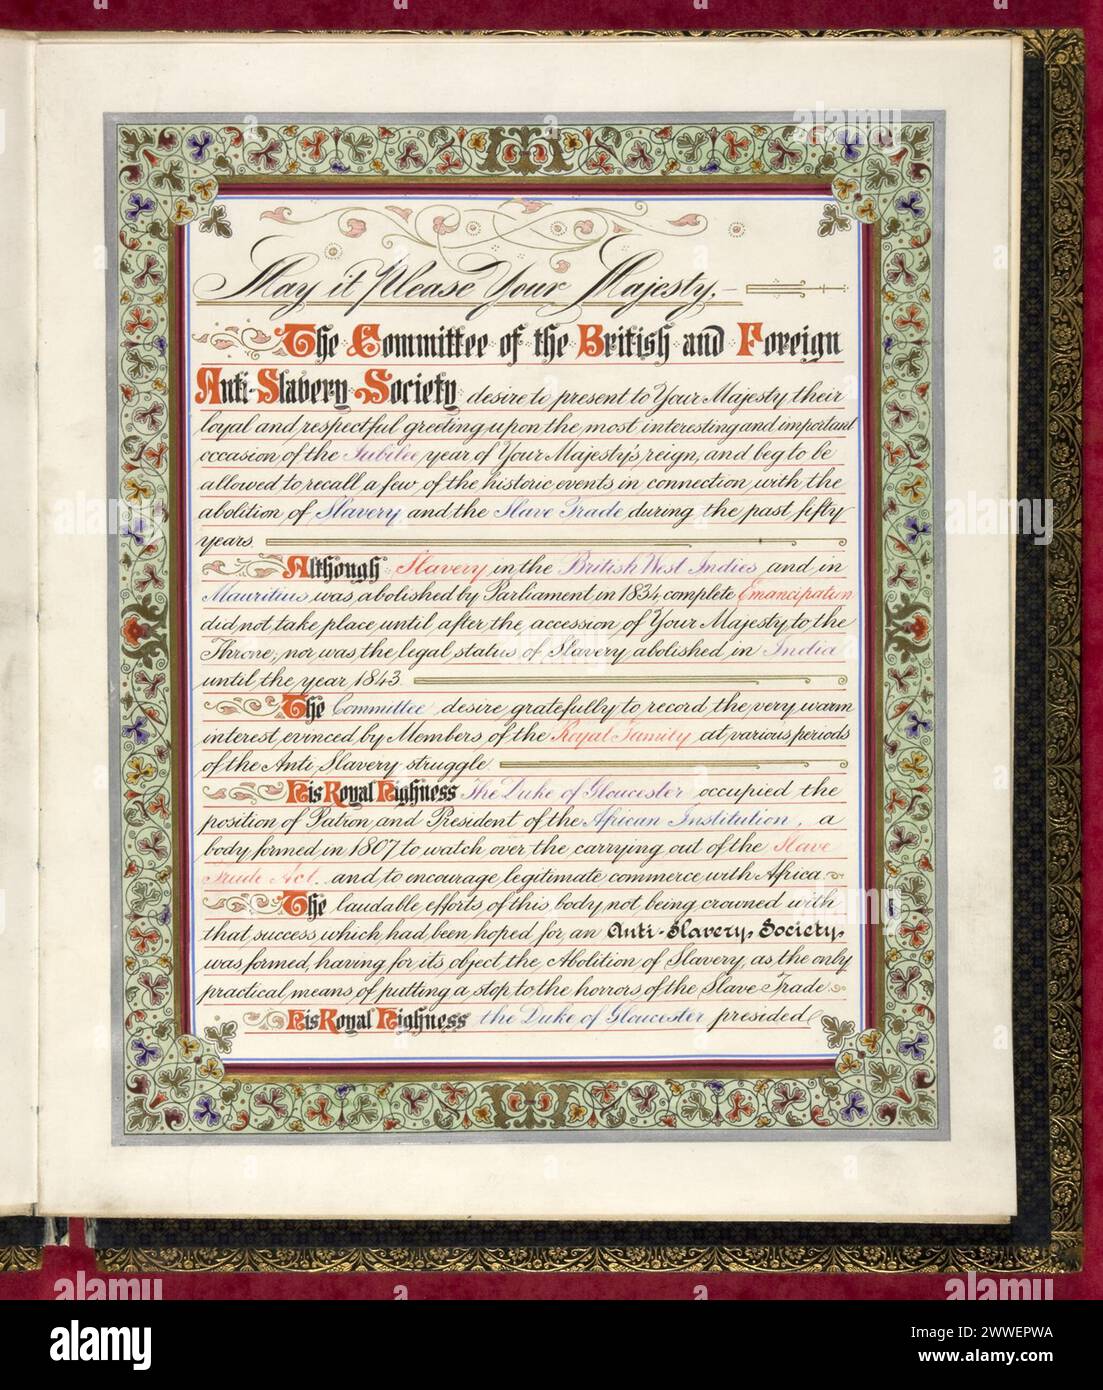 May it Please Your Majesty,—
The Committee of the British and Foreign
Anti-Slavery Society desire to present to Your Majesty their
loyal and respectful greeting upon the most interesting and important
occasion of the Jubilee year of Your Majesty's reign, and beg to be
allowed to recall a few of the historic events in connection with the
abolition of Slavery and the Slave Trade during the past fifty
years.
Although Slavery in the British West Indies and in
Mauritius was abolished by Parliament in 1834, complete Emancipation
did not take place until after the accession of Your Majesty to the
Throne, nor was the legal status of Slavery abolished in India
until the year 1843.
The Committee desire gratefully to record the very warm
interest evinced by Members of the Royal Family at various periods
of the Anti Slavery struggle
His Royal Highness The Duke of Gloucester occupied the
position of Patron and President of the African Institution, a
body formed in 1807 to watch over the carrying out of the Slave
Trade Act, and to encourage legitimate commerce with Africa.
The laudable efforts of this body not being crowned with
that success which had been hoped for, an Anti-Slavery Society,
was formed, having for its object the Abolition of Slavery, as the only
practical means of putting a stop to the horrors of the Slave Trade
His Royal Highness the Duke of Gloucester presided
alamy
Image ID: 2WWEPWA
www.alamy.com